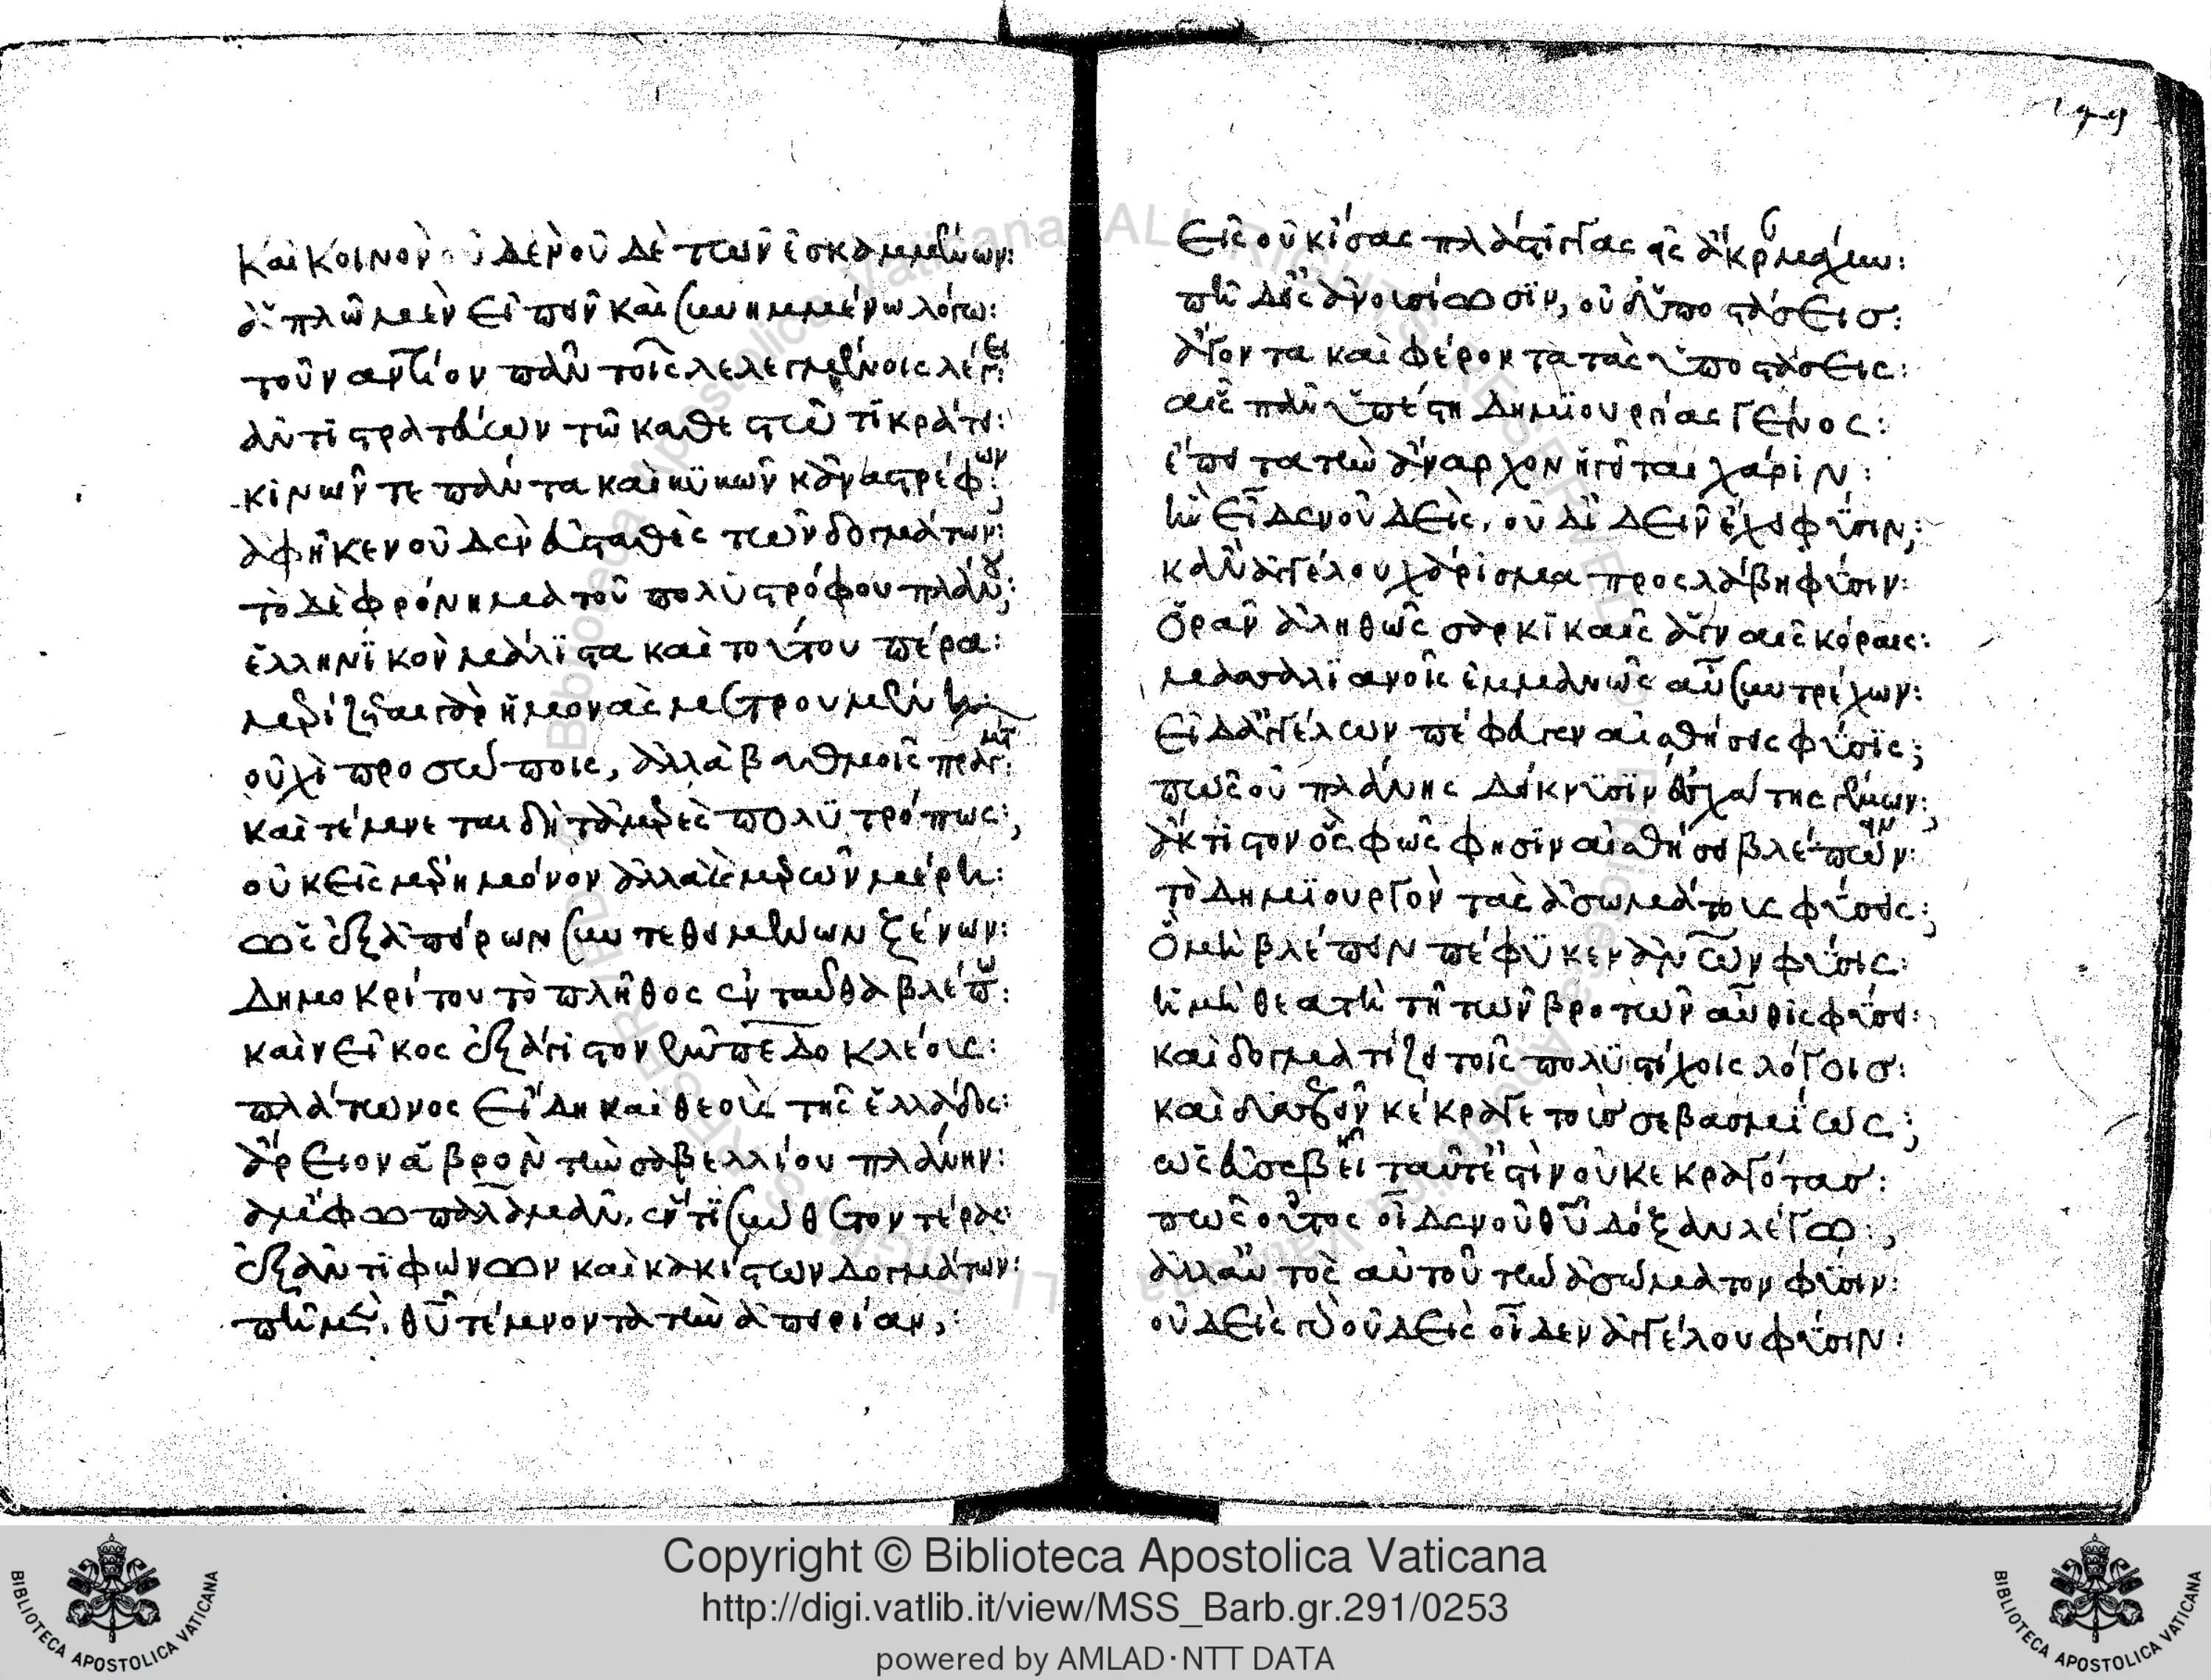 καὶ κοινὸν οὐδὲν οὐδὲ τῶν ἐσκαμμένων:
ἁπλῶ μὲν εἰπεῖν καὶ συνημμένω λόγω:
τοὐναντίον πᾶν τοῖς λελεγμένοις λέγει
ἀντιστρατεύων τῶ καθεστῶτι κράτει:
κινῶν τε πάντα καὶ κυκῶν κἀναστρέφων;
ἀφῆκεν οὐδὲν εὐσταθὲς τῶν δογμάτων:
τὸ δὲ φρόνημα τοῦ πολυστρόφου πλάνου;
ἑλληνικὸν μάλιστα καὶ τούτου πέρα:
μερίζεται γὰρ ἡ μονὰς μετρουμένη:
οὐχὶ προσώποις, ἀλλὰ βαθμοῖς πραγμάτων
καὶ τέμνεται δὴ τἀμερὲς πολυτρόπως:,
οὐκ εἰς μέρη μόνον ἀλλὰ εἰς μερῶν μέρη:
ὡς ἐξ ἀπείρων συντεθειμένων ξένων:
Δημοκρίτου τὸ πλῆθος ἐνταῦθα βλέπω:
καὶ νεῖκος ἐξάγιστον ἐμπεδοκλέους:
πλάτωνος εἴδη καὶ θεοὺς τῆς ἑλλάδος:
ἄρειον ἁβρὸν τὴν σαβελλίου πλάνην:
ἄμφω παλαμᾶν, ἔν τι σύνθετον τέρας:
ἐξ ἀντιφώνων καὶ κακίστων δογμάτων:
θῦ τέμνοντα τὴν ἀπειρίαν,:
εἰς οὐκ ἴσας πλάστιγγας
οὐχ ὑποστάσεις:
ἄγοντα καὶ φέροντα τὰς ὑποστάσεις:
αἷς πᾶν ὑπέστη δημιουργίας γένος:
ἕπειτα τὴν ἄναρχον ἡγεῖται χάριν:
ἣν εἶδεν οὐδεὶς, οὐδ' ἰδεῖν ἔχει φύσιν;
κἂν ἀγγέλου χάρισμα προσλάβη φύσιν:
ὁρᾶν ἀληθῶς σαρκικαῖς ἄγεν αἷς κόραις:
μασσαλιανοῖς ἐμμανῶς αὖ συντρέχων:
εἰ δ' ἀγγέλων πέφευγεν αἰσθήσεις φύσις;
πῶς οὐ πλάνης δείκνυσιν
ἄκτιστον ὃς φῶς φησὶν αἰσθήσει βλέπειν:
τὸ δημιουργὸν τὰς ἀσωμάτους φύσεις;
ὃ μὴ βλέπειν πέφυκεν ἀγγέλων φύσις:
ἢ μὴ θεατὴ τῆ τῶν βροτῶν αὖθις φύσει:
καὶ δογματίζει τοῖς πολυστίχοις λόγοις:
κέκραγε τοὺς σεβασμίως;
ὡς εὐσεβεῖ ταῦτ' ἐστὶν οὐ κεκραγότας:
πῶς οὗτος οἶδεν οὐ θῦ δόξαν λέγω:,
ἀλλ' αὐτὸς αὐτοῦ τὴν ἀσώματον φύσιν:
οὐδεὶς γὰρ οὐδεὶς οἶδεν ἀγγέλου φύσιν:
Copyright © Biblioteca Apostolica Vaticana
http://digi.vatlib.it/view/MSS_Barb.gr.291/0253
powered by AMLAD·NTT DATA
BIBLIOTECA APOSTOLICA VATICANA
BIBLIOTECA APOSTOLICA VATICANA